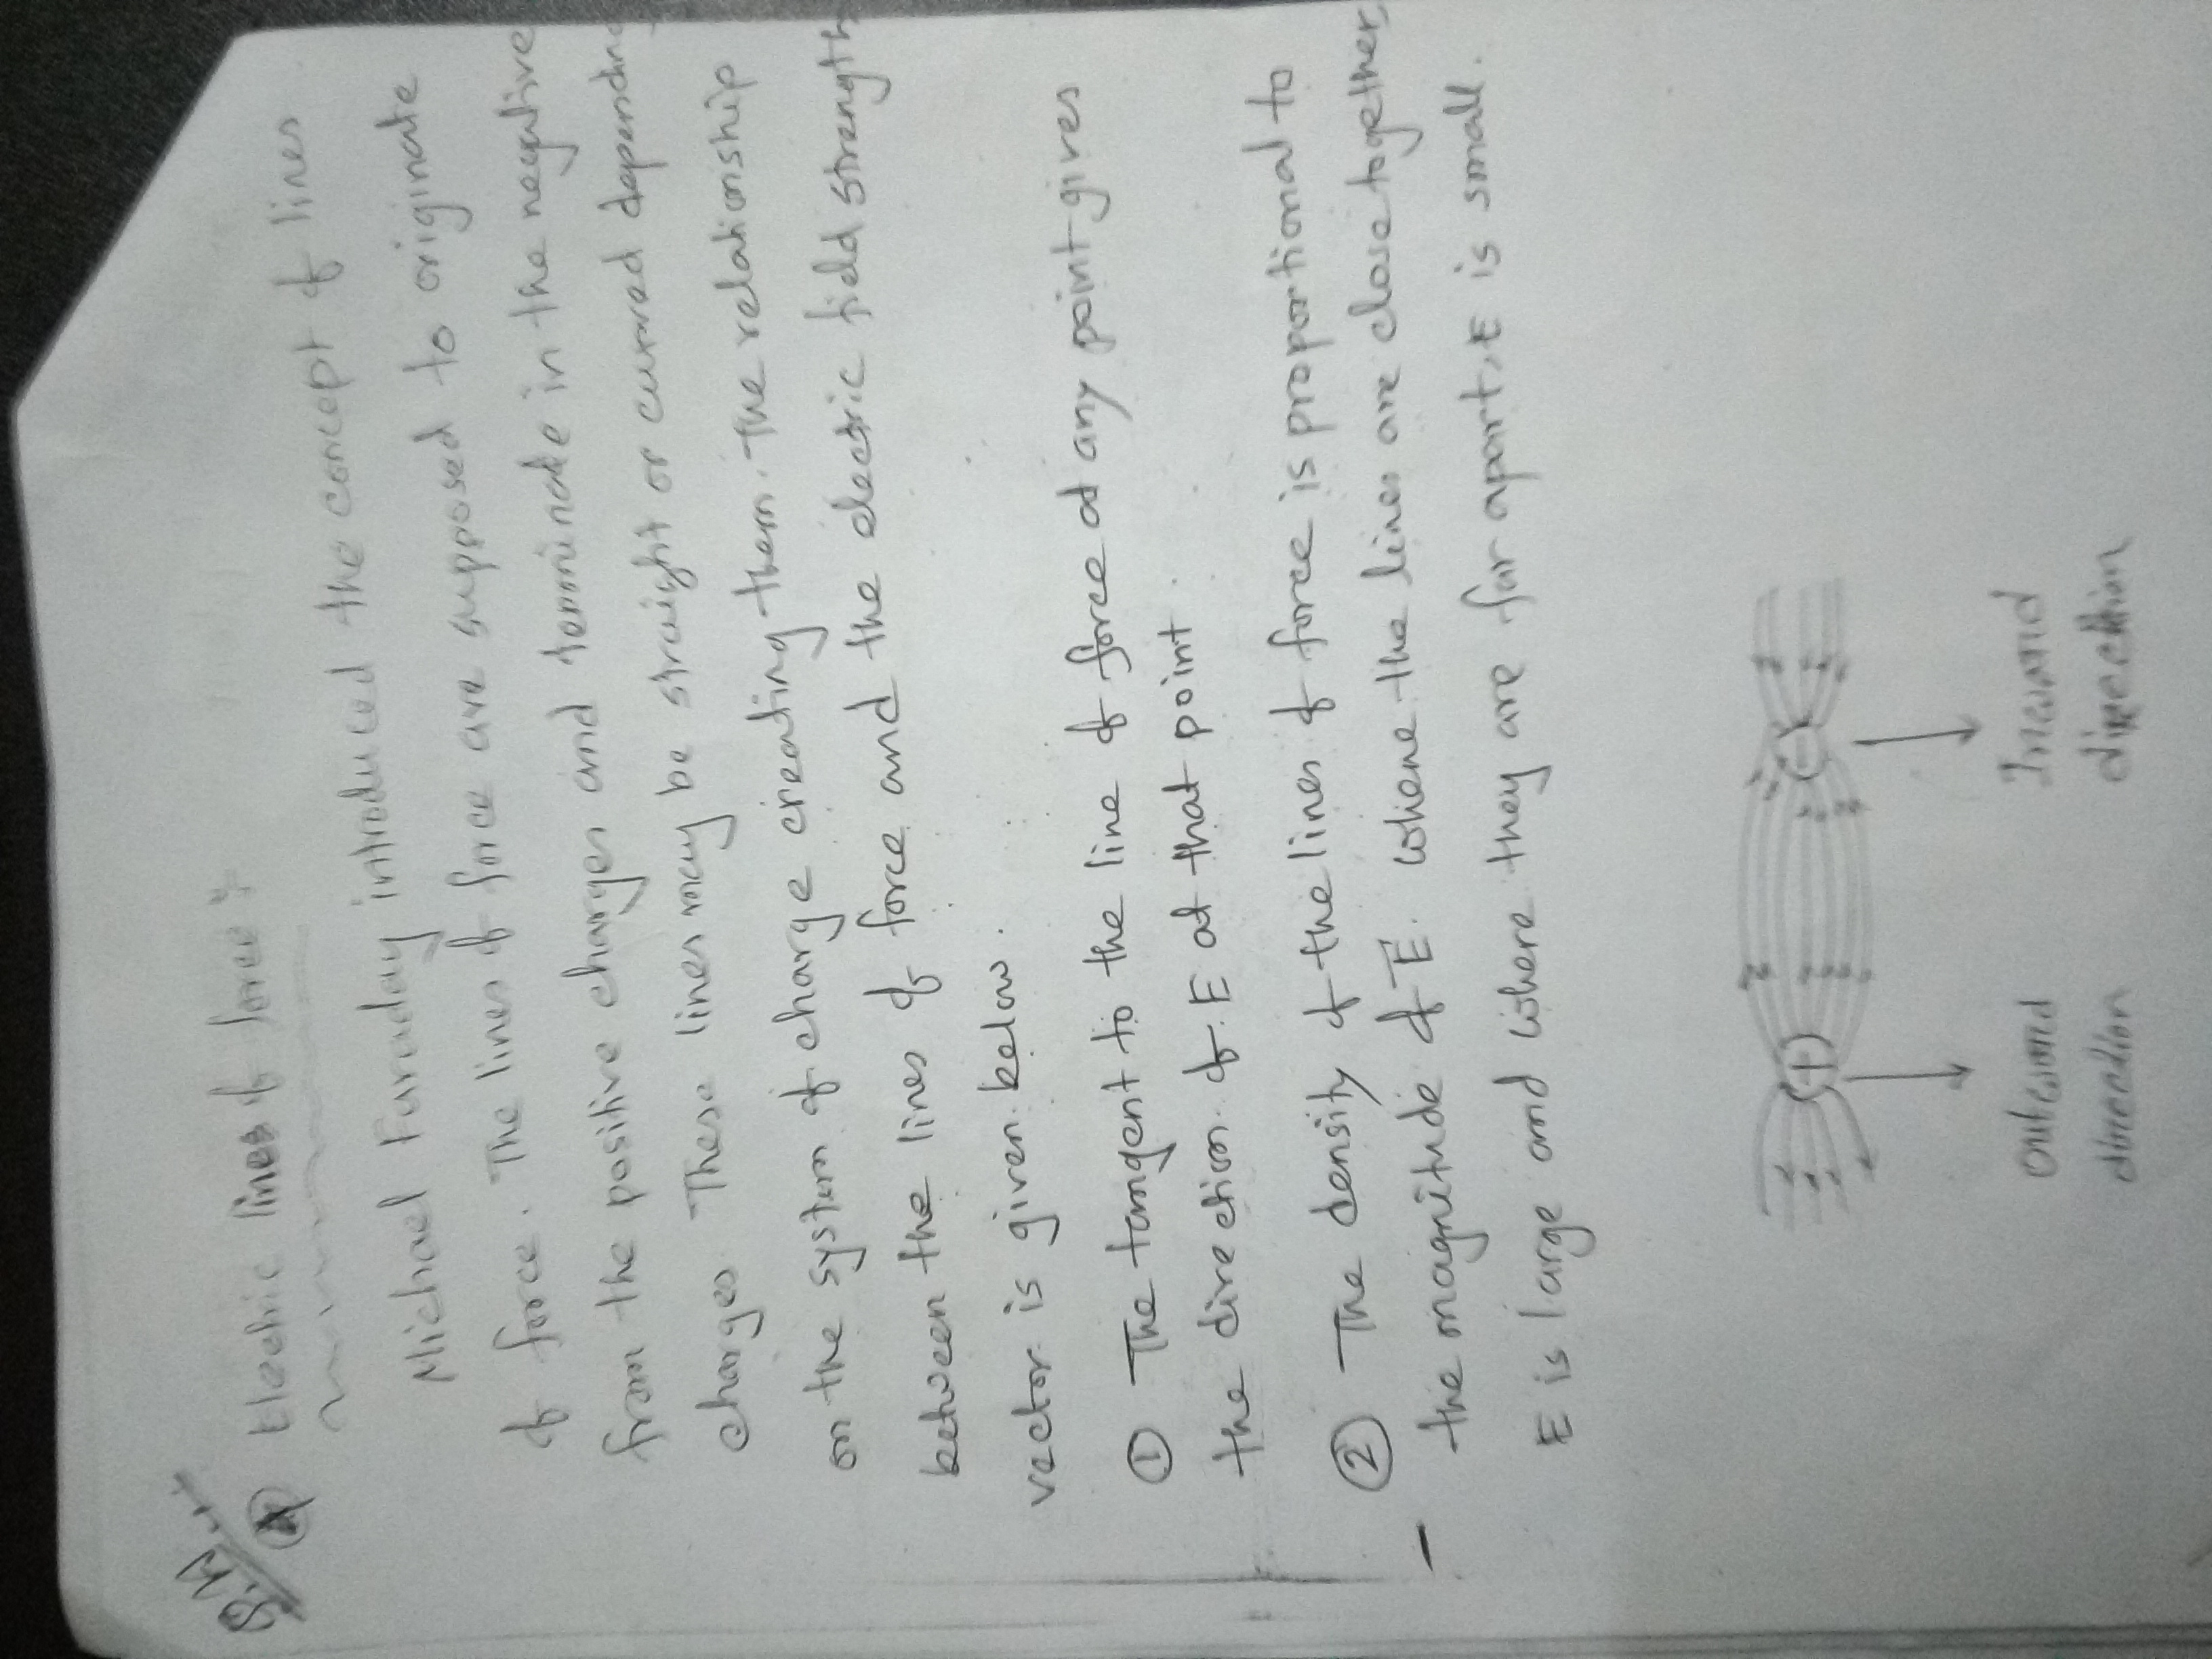 S.W
④ Electric lines of force :-
Michael Faraday introduced the concept of lines
of force. The lines of force are supposed to originate
from the positive charges and terminate in the negative
charges. These lines may be straight or curved depending
on the system of charge creating them. The relationship
between the lines of force and the electric field strength
vector is given below.
① The tangent to the line of force at any point gives
the direction of E at that point.
② The density of the lines of force is proportional to
the magnitude of E. Where the lines are close together,
E is large and where they are far apart, E is small.
+ -
Outward Inward
direction direction